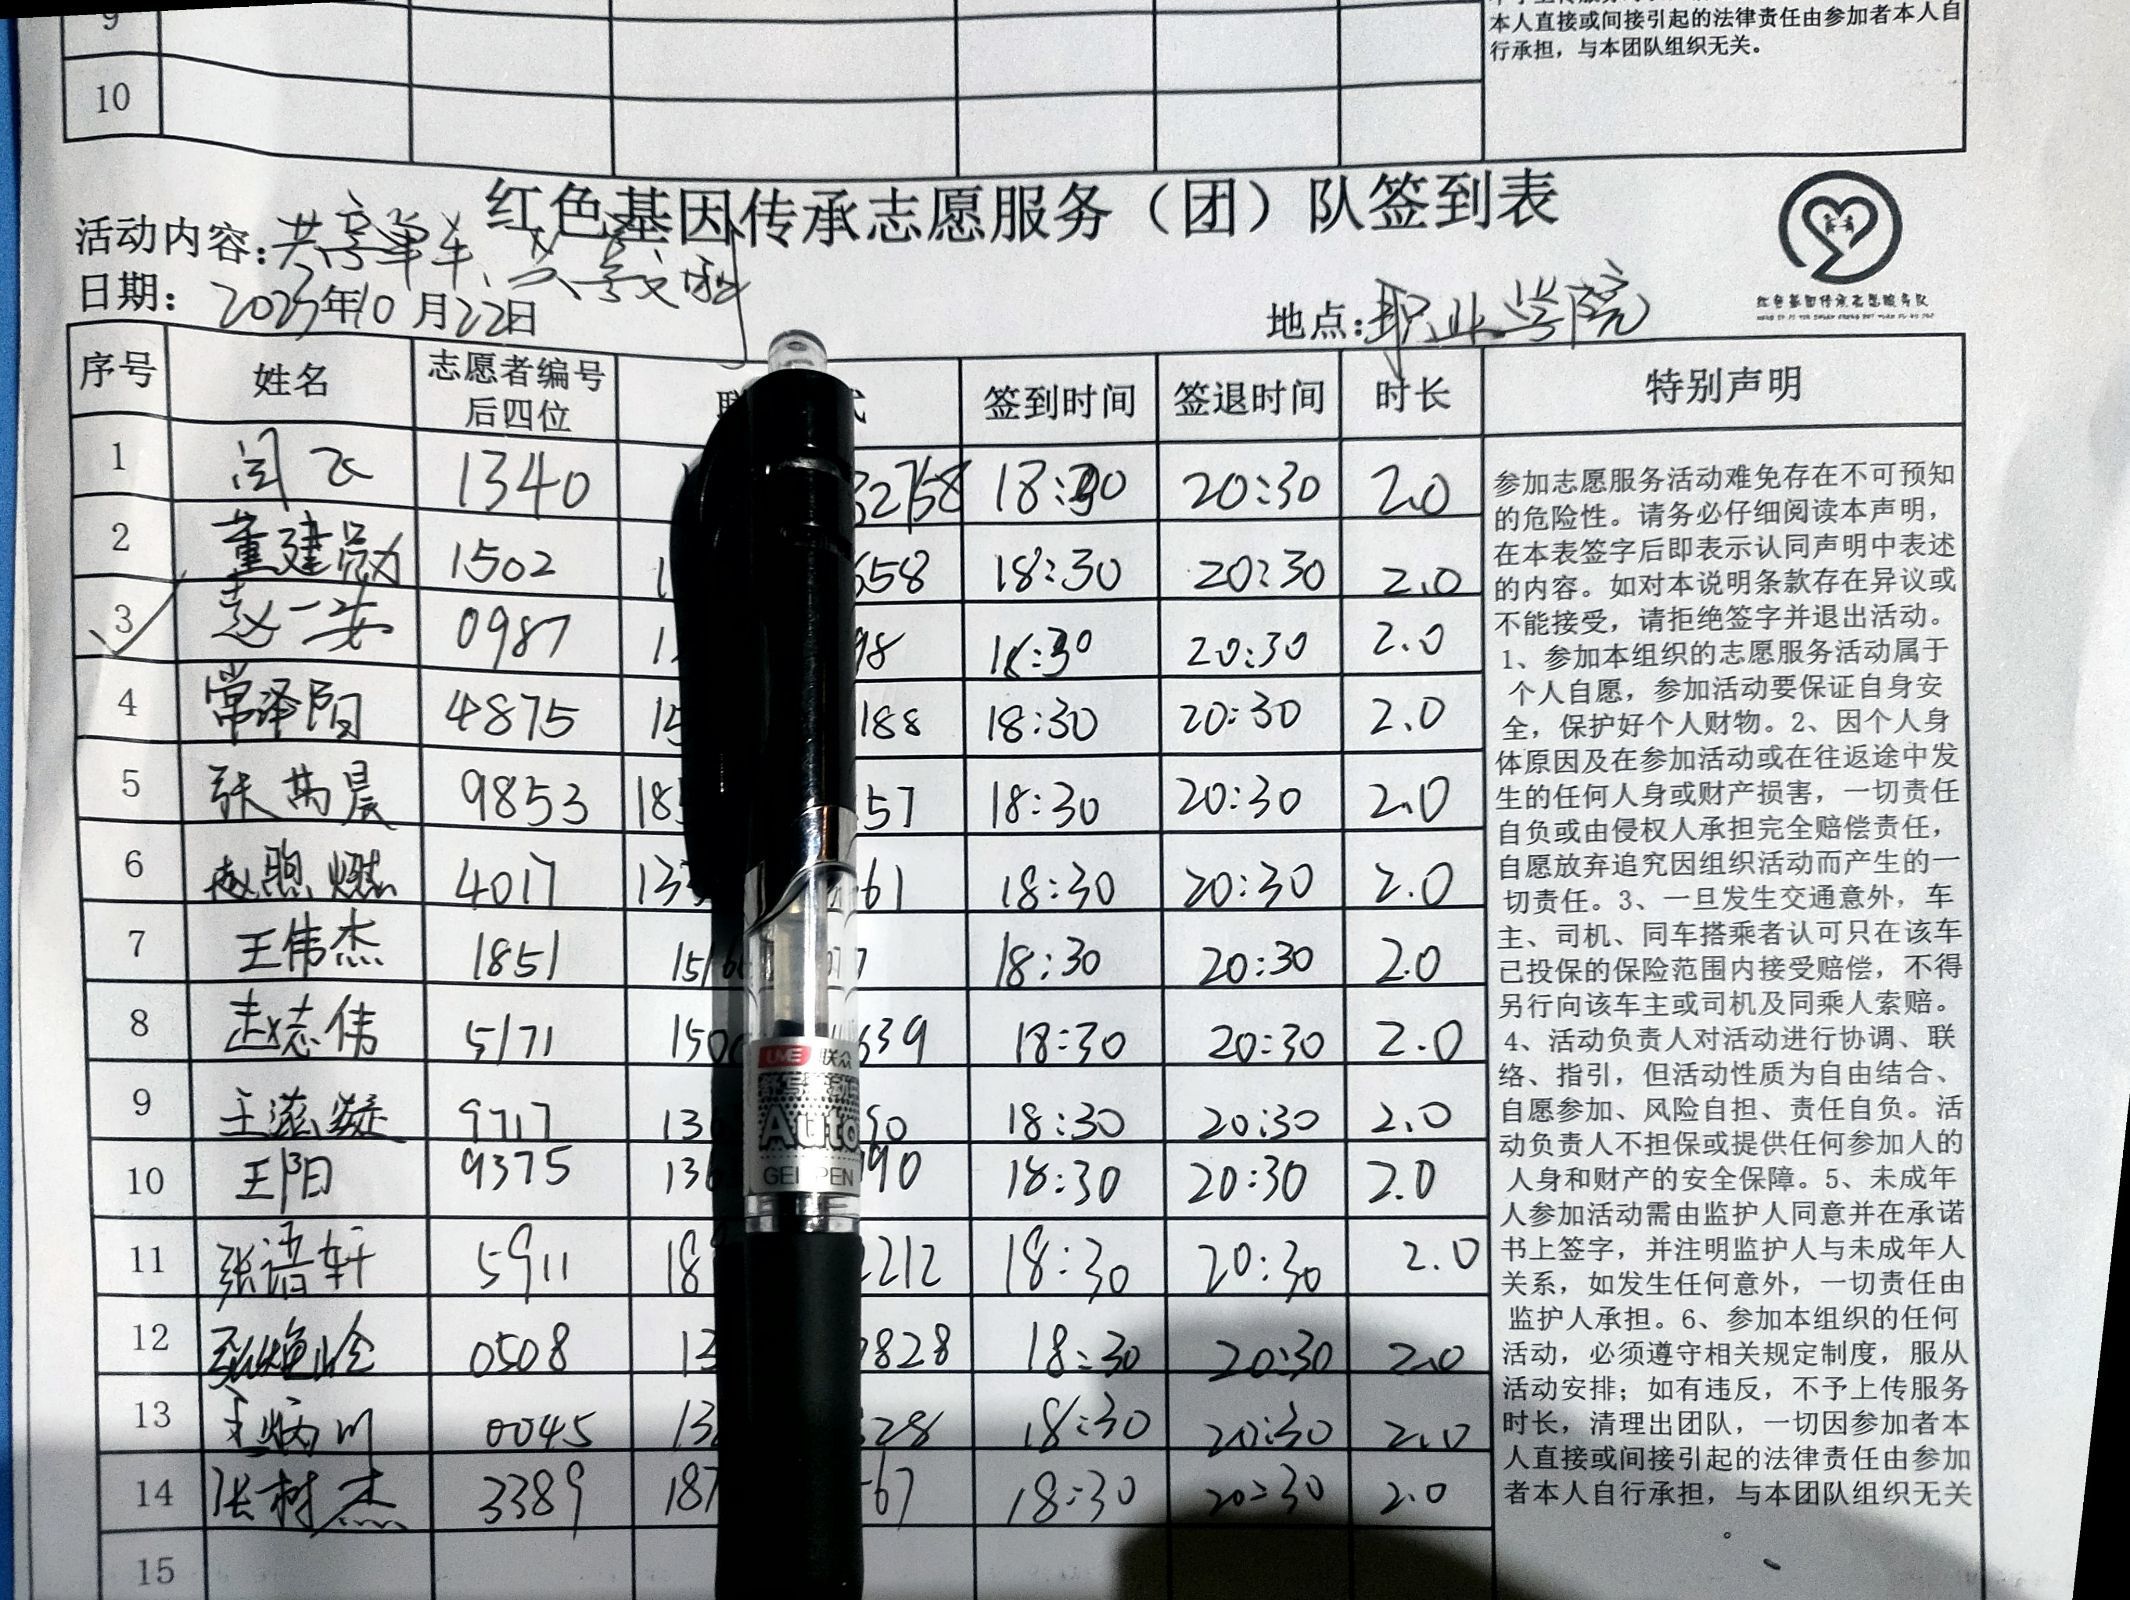 9
本人直接或间接引起的法律责任由参加者本人自
行承担，与本团队组织无关。
10
红色基因传承志愿服务（团）队签到表
活动内容：共享单车、共享文明
日期：2023年10月22日
地点：职业学院
红色基因传承志愿服务队
序号 姓名 志愿者编号后四位 联 式 签到时间 签退时间 时长 特别声明
1 闫飞 1340 32758 18:30 20:30 2.0
2 董建勋 1502 1 658 18:30 20:30 2.0
3 赵一安 0987 1 98 18:30 20:30 2.0
4 常泽阳 4875 15 188 18:30 20:30 2.0
5 张 晨 9853 185 57 18:30 20:30 2.0
6 赵煦燃 4017 133 61 18:30 20:30 2.0
7 王伟杰 1851 1516 77 18:30 20:30 2.0
8 赵志伟 5171 150 639 18:30 20:30 2.0
9 王滋凝 9717 136 90 18:30 20:30 2.0
10 王阳 9375 136 90 18:30 20:30 2.0
11 张语轩 5911 18 2212 18:30 20:30 2.0
12 0508 13 828 18:30 20:30 2.0
13 0045 13 28 18:30 20:30 2.0
14 张树杰 3389 187 67 18:30 20:30 2.0
15
参加志愿服务活动难免存在不可预知
的危险性。请务必仔细阅读本声明，
在本表签字后即表示认同声明中表述
的内容。如对本说明条款存在异议或
不能接受，请拒绝签字并退出活动。
1、参加本组织的志愿服务活动属于
个人自愿，参加活动要保证自身安
全，保护好个人财物。2、因个人身
体原因及在参加活动或在往返途中发
生的任何人身或财产损害，一切责任
自负或由侵权人承担完全赔偿责任，
自愿放弃追究因组织活动而产生的一
切责任。3、一旦发生交通意外，车
主、司机、同车搭乘者认可只在该车
已投保的保险范围内接受赔偿，不得
另行向该车主或司机及同乘人索赔。
4、活动负责人对活动进行协调、联
络、指引，但活动性质为自由结合、
自愿参加、风险自担、责任自负。活
动负责人不担保或提供任何参加人的
人身和财产的安全保障。5、未成年
人参加活动需由监护人同意并在承诺
书上签字，并注明监护人与未成年人
关系，如发生任何意外，一切责任由
监护人承担。6、参加本组织的任何
活动，必须遵守相关规定制度，服从
活动安排；如有违反，不予上传服务
时长，清理出团队，一切因参加者本
人直接或间接引起的法律责任由参加
者本人自行承担，与本团队组织无关
。
UME 联众
Auto
GEL PEN